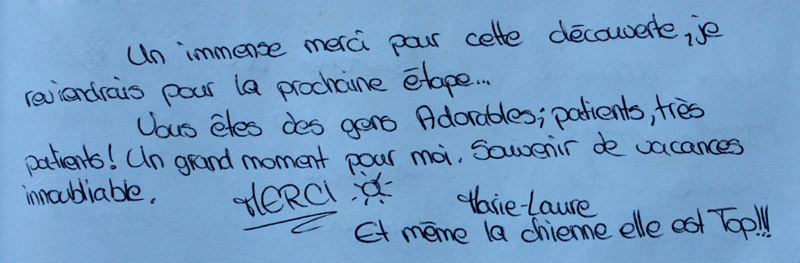 Un immense merci pour cette découverte, je
reviendrais pour la prochaine étape...
Vous êtes des gens Adorables; patients, très
patients! Un grand moment pour moi. Souvenir de vacances
innoubliable. MERCI Marie-Laure
Et même la chienne elle est Top!!!